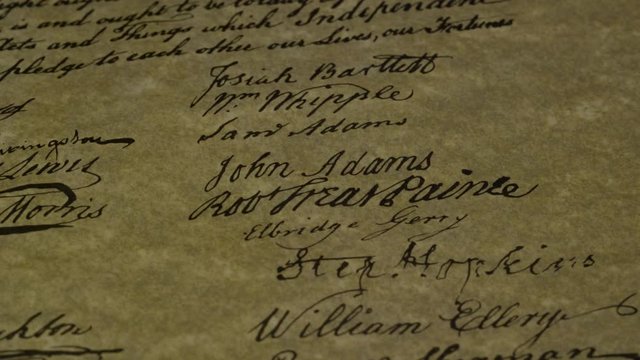 is and ought to be totally
and Things which Independent
pledge to each other our Lives, our Fortunes
Josiah Bartlett
Wm Whipple
of
Saml Adams
Lewis
John Adams
Morris
Robt Treat Paine
Elbridge Gerry
Step. Hopkins
William Ellery